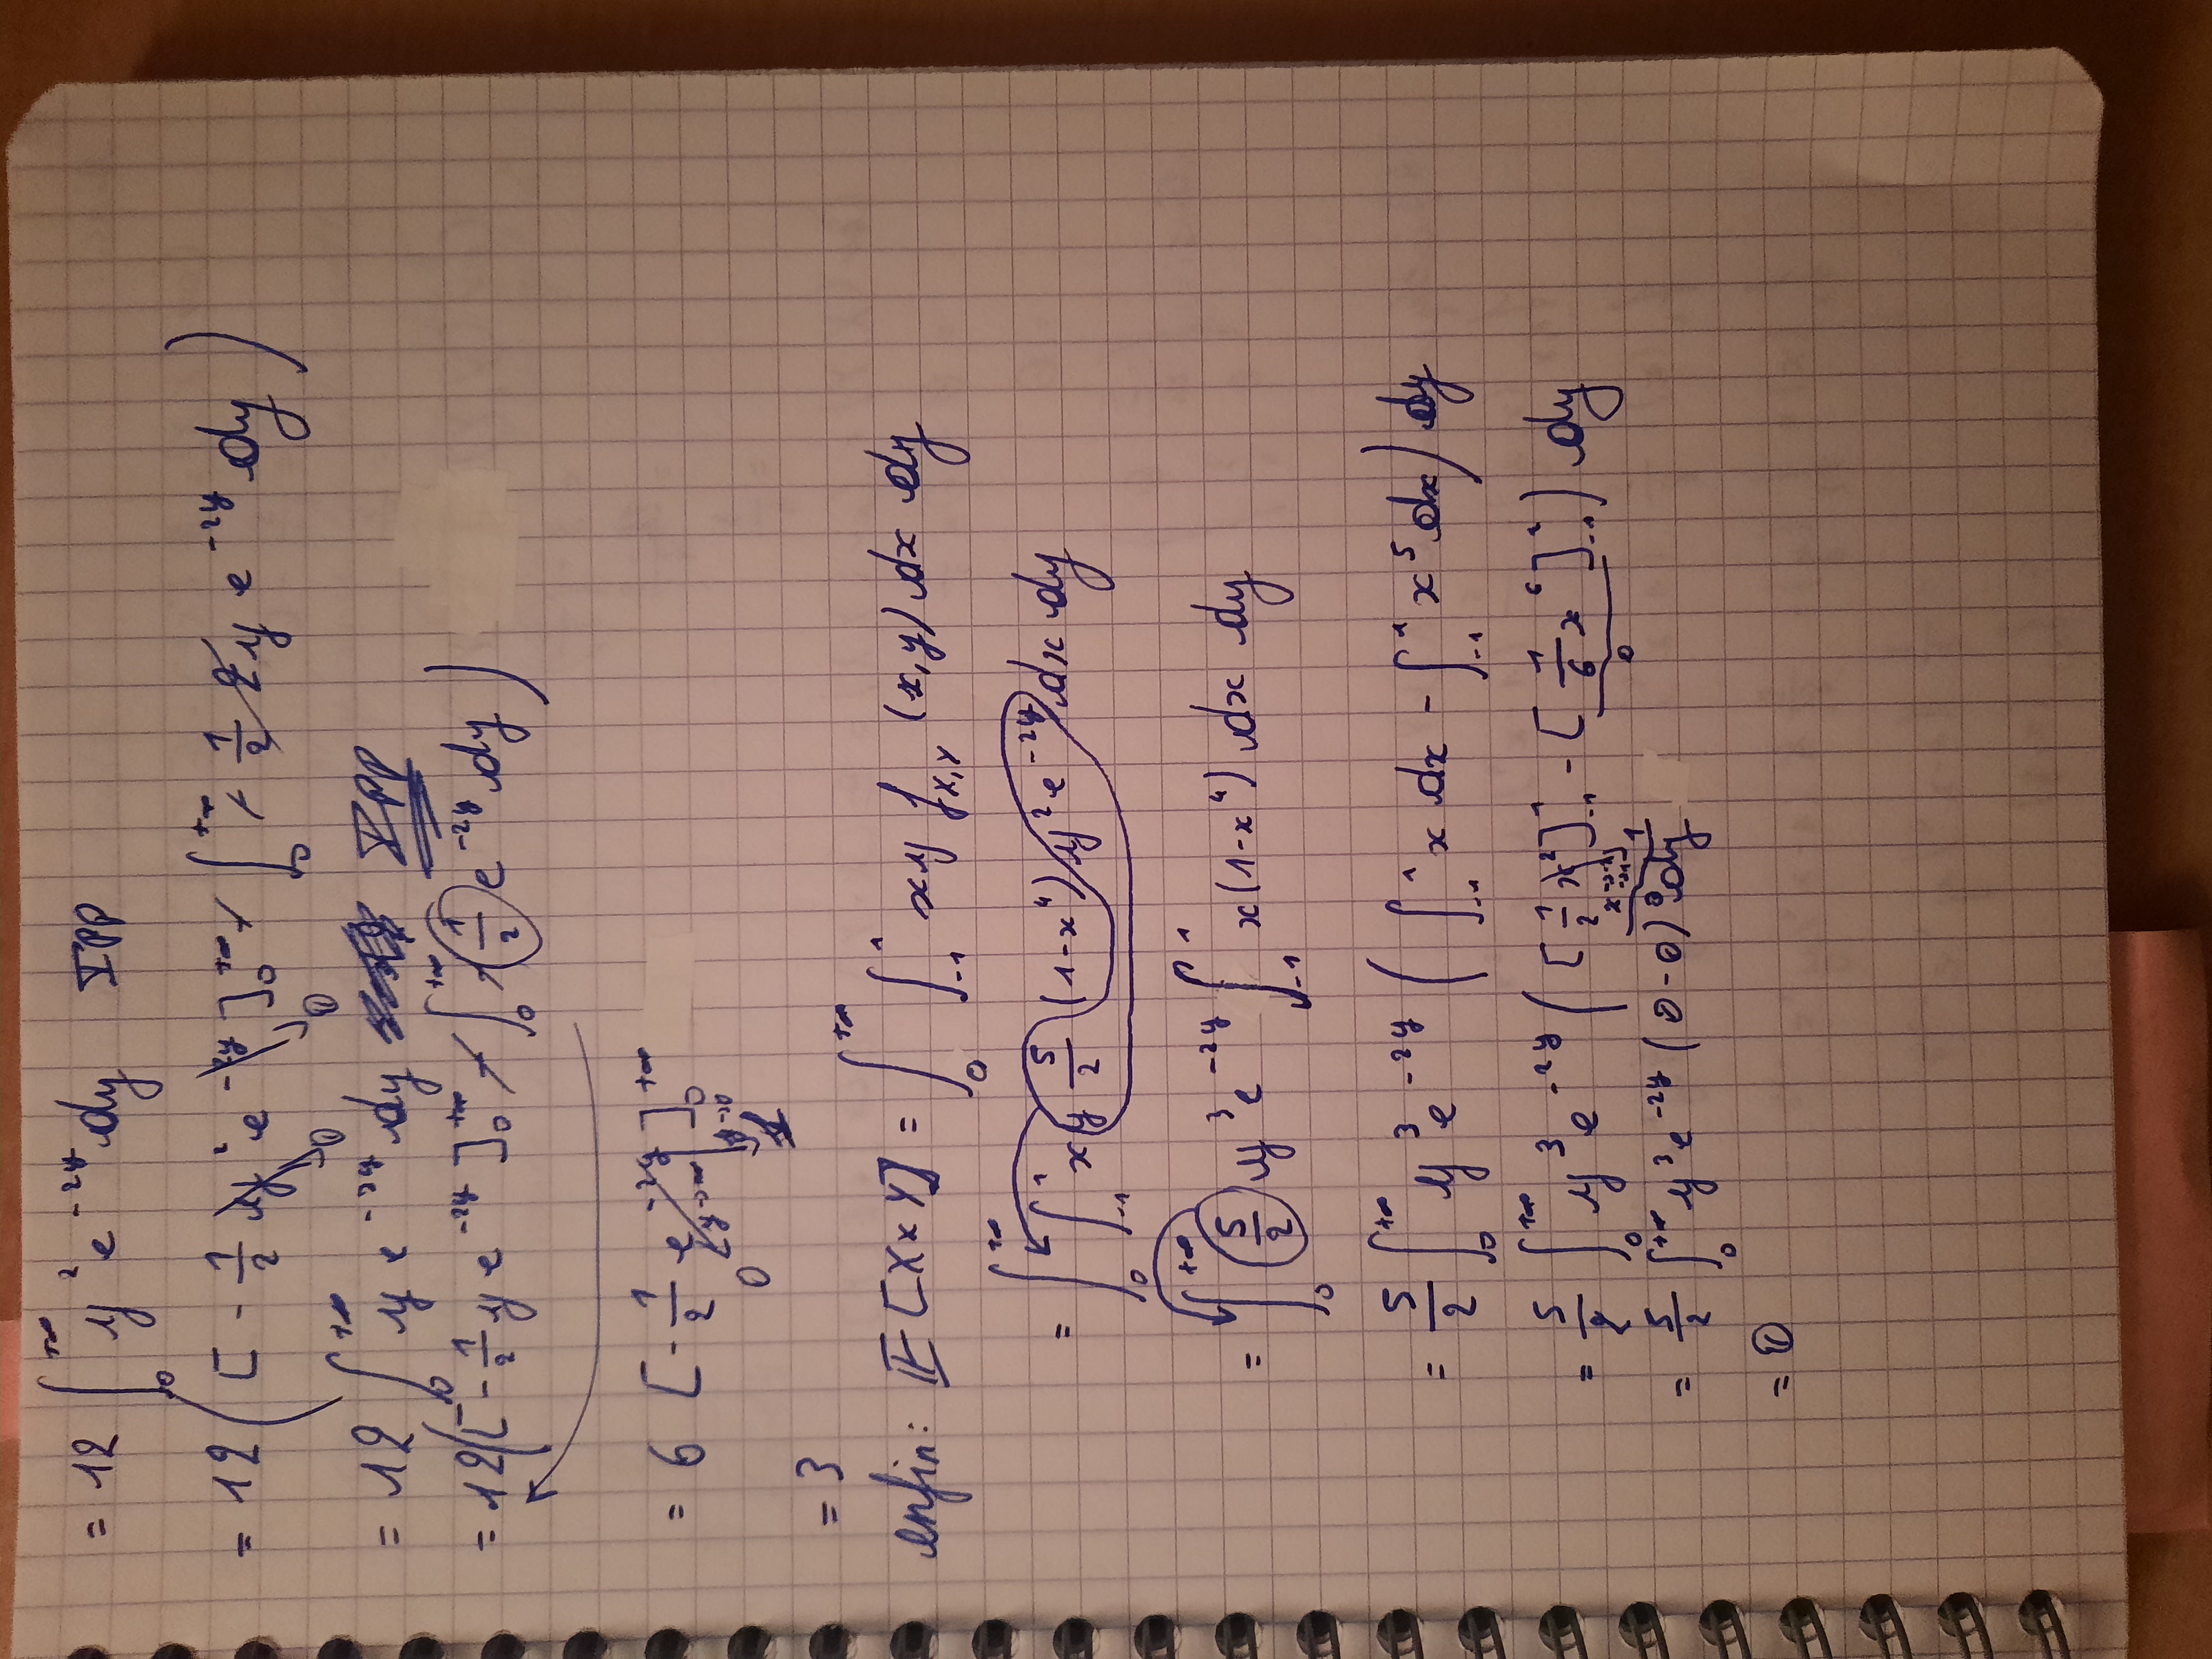 = 12 ∫₀^{+∞} y² e^{-2y} dy IPP
= 12 ( [ - 1/2 y² e^{-2y} ]₀^{+∞} - ∫₀^{+∞} - 1/2 2y e^{-2y} dy )
→0 →0
= 12 ∫₀^{+∞} y e^{-2y} dy IPP
= 12 ( [ - 1/2 y e^{-2y} ]₀^{+∞} - ∫₀^{+∞} - 1/2 e^{-2y} dy )
= 6 [ - 1/2 e^{-2y} ]₀^{+∞}
y→+∞ y→0
0 1
= 3
enfin: 𝔼[X×Y] = ∫₀^{+∞} ∫_{-1}^{1} xy f_{X,Y} (x,y) dx dy
= ∫₀^{+∞} ∫_{-1}^{1} xy 5/2 (1-x⁴) y² e^{-2y} dx dy
= ∫₀^{+∞} 5/2 y³ e^{-2y} ∫_{-1}^{1} x(1-x⁴) dx dy
= 5/2 ∫₀^{+∞} y³ e^{-2y} ( ∫_{-1}^{1} x dx - ∫_{-1}^{1} x⁵ dx ) dy
= 5/2 ∫₀^{+∞} y³ e^{-2y} ( [ 1/2 x² ]_{-1}^{1} - [ 1/6 x⁶ ]_{-1}^{1} ) dy
0 0
= 5/2 ∫₀^{+∞} y³ e^{-2y} (0-0) dy
= 0